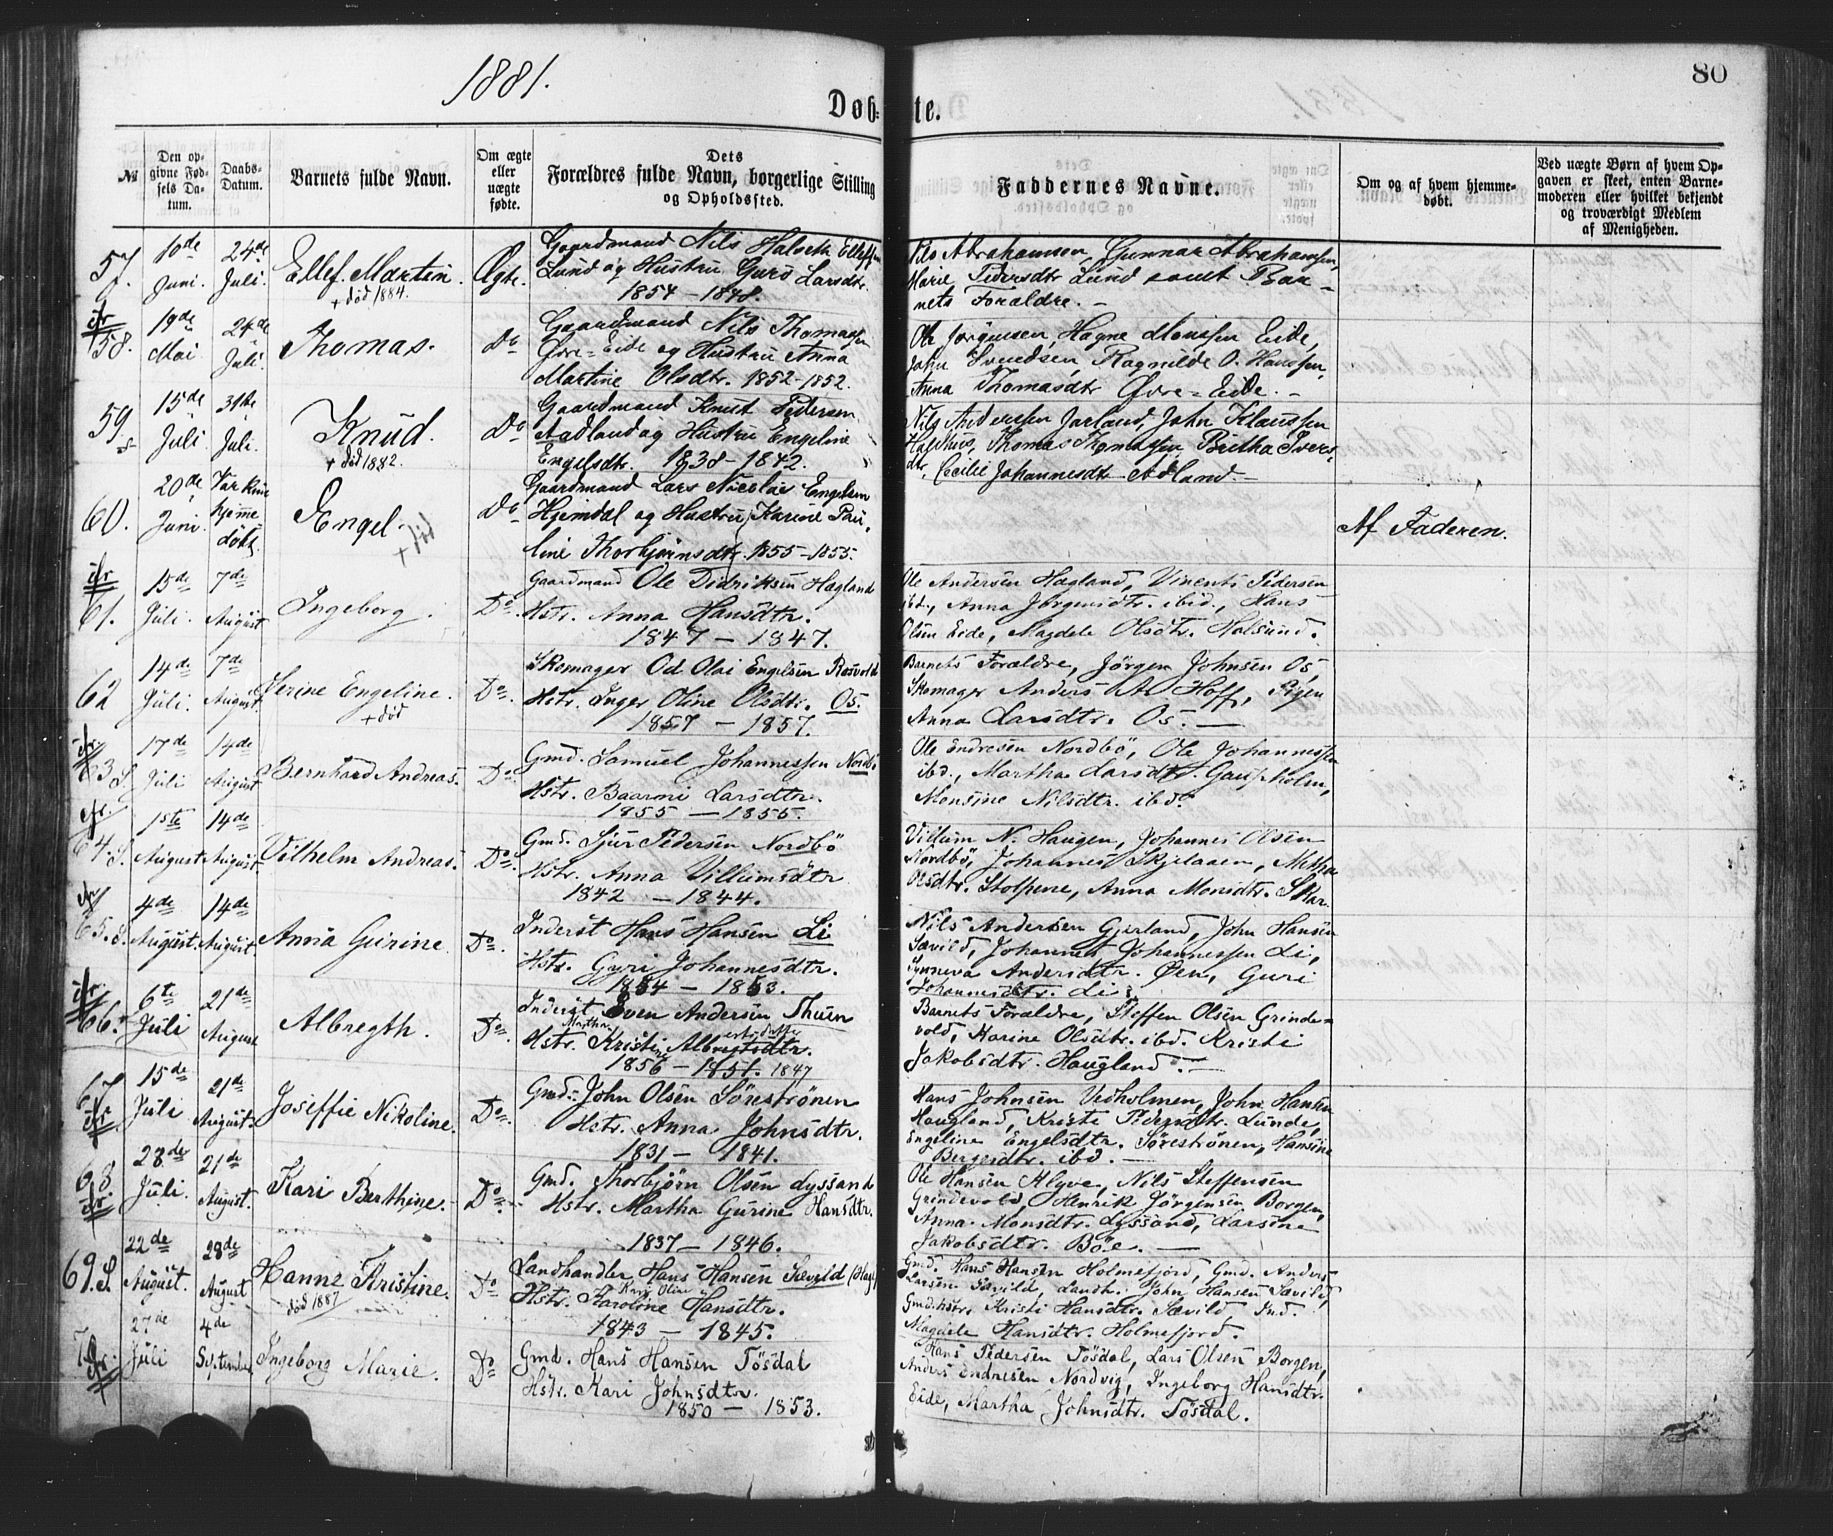 1881.
80
Døb- te.
№
Den opgivne Fødsels Datum.
Daabs-Datum.
Barnets fulde Navn.
Om ægte eller uægte fødte.
Dets Forældres fulde Navn, borgerlige Stilling og Opholdssted.
Faddernes Navne.
Om og af hvem hjemmedøbt.
Ved uægte Børn af hvem Opgaven er skeet, enten Barnemoderen eller hvilket bekjendt og troværdigt Medlem af Menigheden.
57. 10de Juni. 24de Juli. Ellef Martin. + død 1884. Ægte.
Gaardmand Nils Halvek Elleffsen
Lund og Hustru Guro Larsdtr.
1854 – 1848.
Nils Abrahamsen, Gunnar Abrahamsen,
Marie Pedersdtr Lund samt Bar-
nets Forældre. –
58. 19de Mai. 24de Juli. Thomas. Do
Gaardmand Nils Thomassen
Øvre-Eide og Hustru Anna
Martine Olsdtr. 1852-1852.
Ole Jørgensen, Hagne Monssen Eide,
John Svendsen, Ragnilde O. Hanssen,
Anna Thomasdtr Øvre-Eide. –
59. 15de Juli. 31te Juli. Knud. + død 1882. Do
Gaardmand Knut Pedersen
Aadland og Hustru Engeline
Engelsdtr. 1838 – 1842.
Nils Anderssen Jarland, John Klaussen
Thomas Thomassen, Britha Ivers-
dtr, Cecilie Johannesdtr Adland. –
60. 20de Juni. Var kun hjemme døbt. Engel. + død Do
Gaardmand Lars Nicolai Engelsen
Hjemdal og Hustru Karine Pau-
line Thorbjørnsdtr. 1855 – 1855.
Af Faderen.
61. 15de Juli. 7de August Ingeborg. Do.
Gaardmand Ole Didriksen Hægland
Hstr. Anna Hansdtr.
1847 – 1847.
Ole Andersen Hægland, Vincents Pedersen
ibd., Anna Jørgensdtr. ibid., Hans
Olsen Eide, Magdele Olsdtr. Holsund.
62 14de Juli. 7de August. Serine Engeline. + død Do.
Skomager Od Olai Engelsen Røsvold
Hstr. Inger Oline Olsdtr. Os.
1857 – 1857.
Barnets Forældre, Jörgen Johnsen Os,
Skomager Anders A. Hoff, Pigen
Anna Larsdtr. Os. –
63. S. 17de Juli 14de August Bernhard Andreas. Do.
Gmd. Samuel Johannessen Nordbö
Hstr. Baarni Larsdtr.
1855 – 1855.
Ole Endresen Nordbö, Ole Johannessen
ibd., Martha Larsdtr. Gausholm,
Monsine Nilsdtr. ibd.
64. S. 1ste August 14de August. Vilhelm Andreas. Do.
Gmd. Sjur Pedersen Nordbö
Hstr. Anna Villumsdtr
1842 – 1844.
Villum N. Haugen, Johannes Olsen
Nordbö, Johannes Skjelaaen, Metha
Olsdtr. Stolpene, Anna Monsdtr. Skar.
65. S. 4de August. 14de August. Anna Gurine. Do.
Inderst Hans Hansen Li
Hstr. Guri Johannesdtr.
1854 – 1853.
Nils Andersen Gjerland, John Hansen
Sævild, Johannes Johannessen Li,
Synneva Andersdtr. Øen, Guri
Johannesdtr. Li.
66. 6te Juli 21de August Albregth. Do.
Inderst Sven Andersen Thuen
Hstr. Martha Kristi Albregtsdtr.
1856 – 1851. 1847
Barnets Forældre, Steffen Olsen Grinde-
vold, Karine Olsdtr. ibd. Kristi
Jakobsdtr. Haugland. –
67. 15de Juli 21de August. Joseffie Nikoline. Do.
Gmd. John Olsen Söreströnen
Hstr. Anna Johnsdtr.
1831 – 1841.
Hans Johnsen Vedholmen, John Hansen
Haugland, Kristi Pedersdtr. Lunde,
Engeline Engelsdtr. Söreströnen, Hansine
Bergesdtr. ibd. –
68. 28de Juli. 21de August. Kari Berthine. Do.
Gmd. Thorbjörn Olsen Lyssand
Hstr. Martha Gurine Hansdtr.
1837 – 1846.
Ole Hansen Klyve, Nils Steffensen
Grindevold, Henrik Jörgensen Borgen,
Anna Monsdtr. Lyssand, Larsine
Jakobsdtr. Böe. –
69. S. 22de August. 28de August Hanne Kristine. død 1887 Do
Landhandler Hans Hansen Sævild
Hstr. Karoline Hansdtr.
1843 – 1845.
Gmd. Hans Hansen Holmefjord, Gmd. Anders
Larsen Sævild, Landh. John Hansen Sævild,
Gmd.hstr. Kristi Hansdtr. Sævild
Magdele Hansdtr. Holmefjord.
70. 27de Juli 4de September Ingeborg Marie. Do
Gmd. Hans Hansen Tösdal
Hstr. Kari Johnsdtr.
1850 – 1853.
Hans Pedersen Tösdal, Lars Olsen Borgen,
Anders Endresen Nordvig, Ingeborg Hansdtr.
Eide, Martha Johnsdtr. Tösdal.